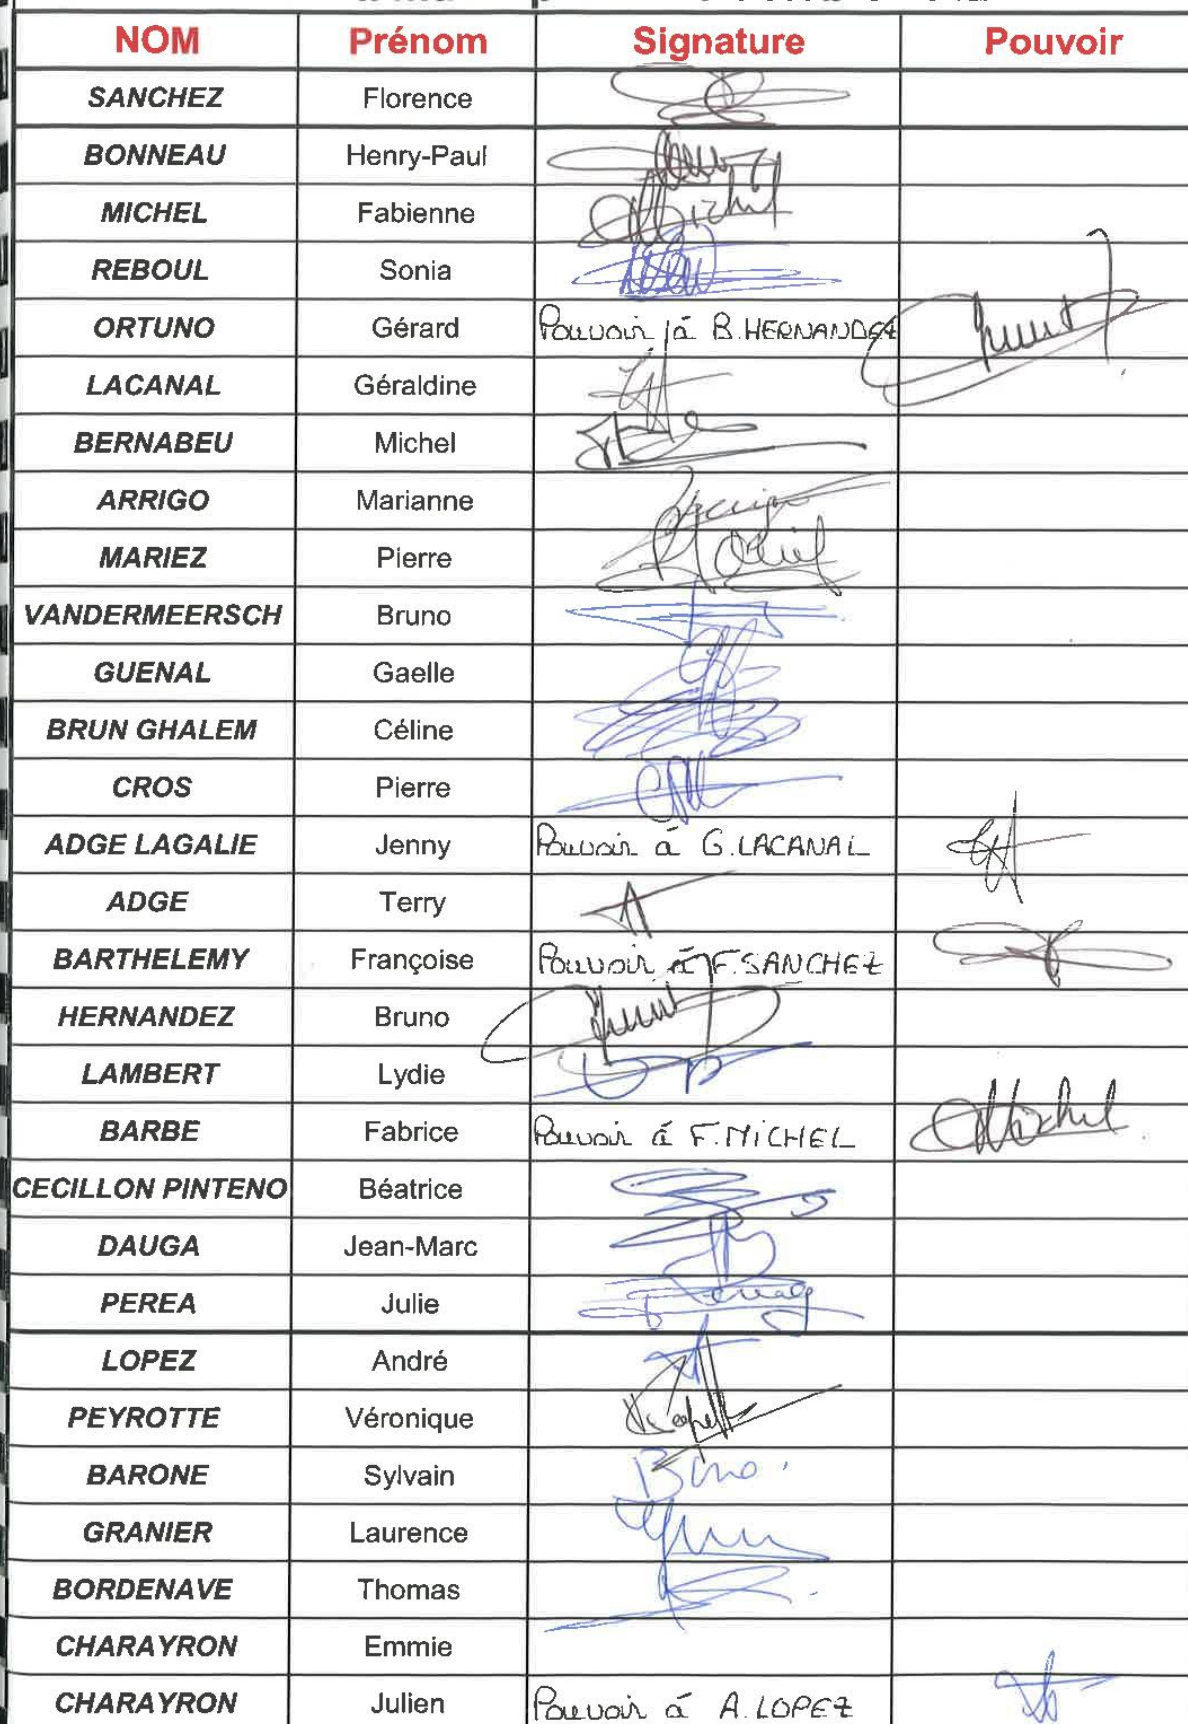 NOM Prénom Signature Pouvoir
SANCHEZ Florence
BONNEAU Henry-Paul
MICHEL Fabienne
REBOUL Sonia
ORTUNO Gérard Pouvoir à B.HERNANDEZ
LACANAL Géraldine
BERNABEU Michel
ARRIGO Marianne
MARIEZ Pierre
VANDERMEERSCH Bruno
GUENAL Gaelle
BRUN GHALEM Céline
CROS Pierre
ADGE LAGALIE Jenny Pouvoir à G.LACANAL
ADGE Terry
BARTHELEMY Françoise Pouvoir à F.SANCHEZ
HERNANDEZ Bruno
LAMBERT Lydie
BARBE Fabrice Pouvoir à F.MICHEL
CECILLON PINTENO Béatrice
DAUGA Jean-Marc
PEREA Julie
LOPEZ André
PEYROTTE Véronique
BARONE Sylvain
GRANIER Laurence
BORDENAVE Thomas
CHARAYRON Emmie
CHARAYRON Julien Pouvoir à A.LOPEZ